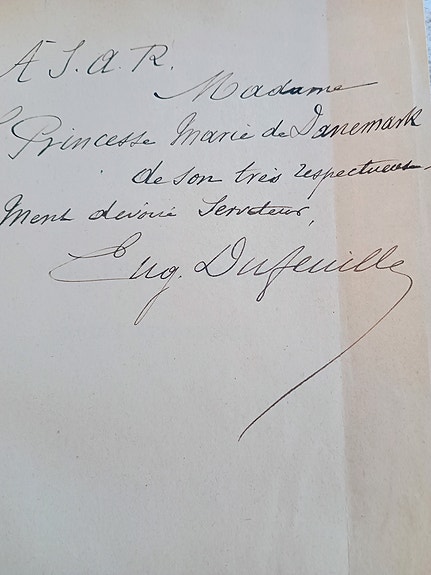 A S. A. R.
Madame
Princesse Marie de Danemark
de son très respectueuse-
ment dévoué Serviteur,
Eug. Dufeuille